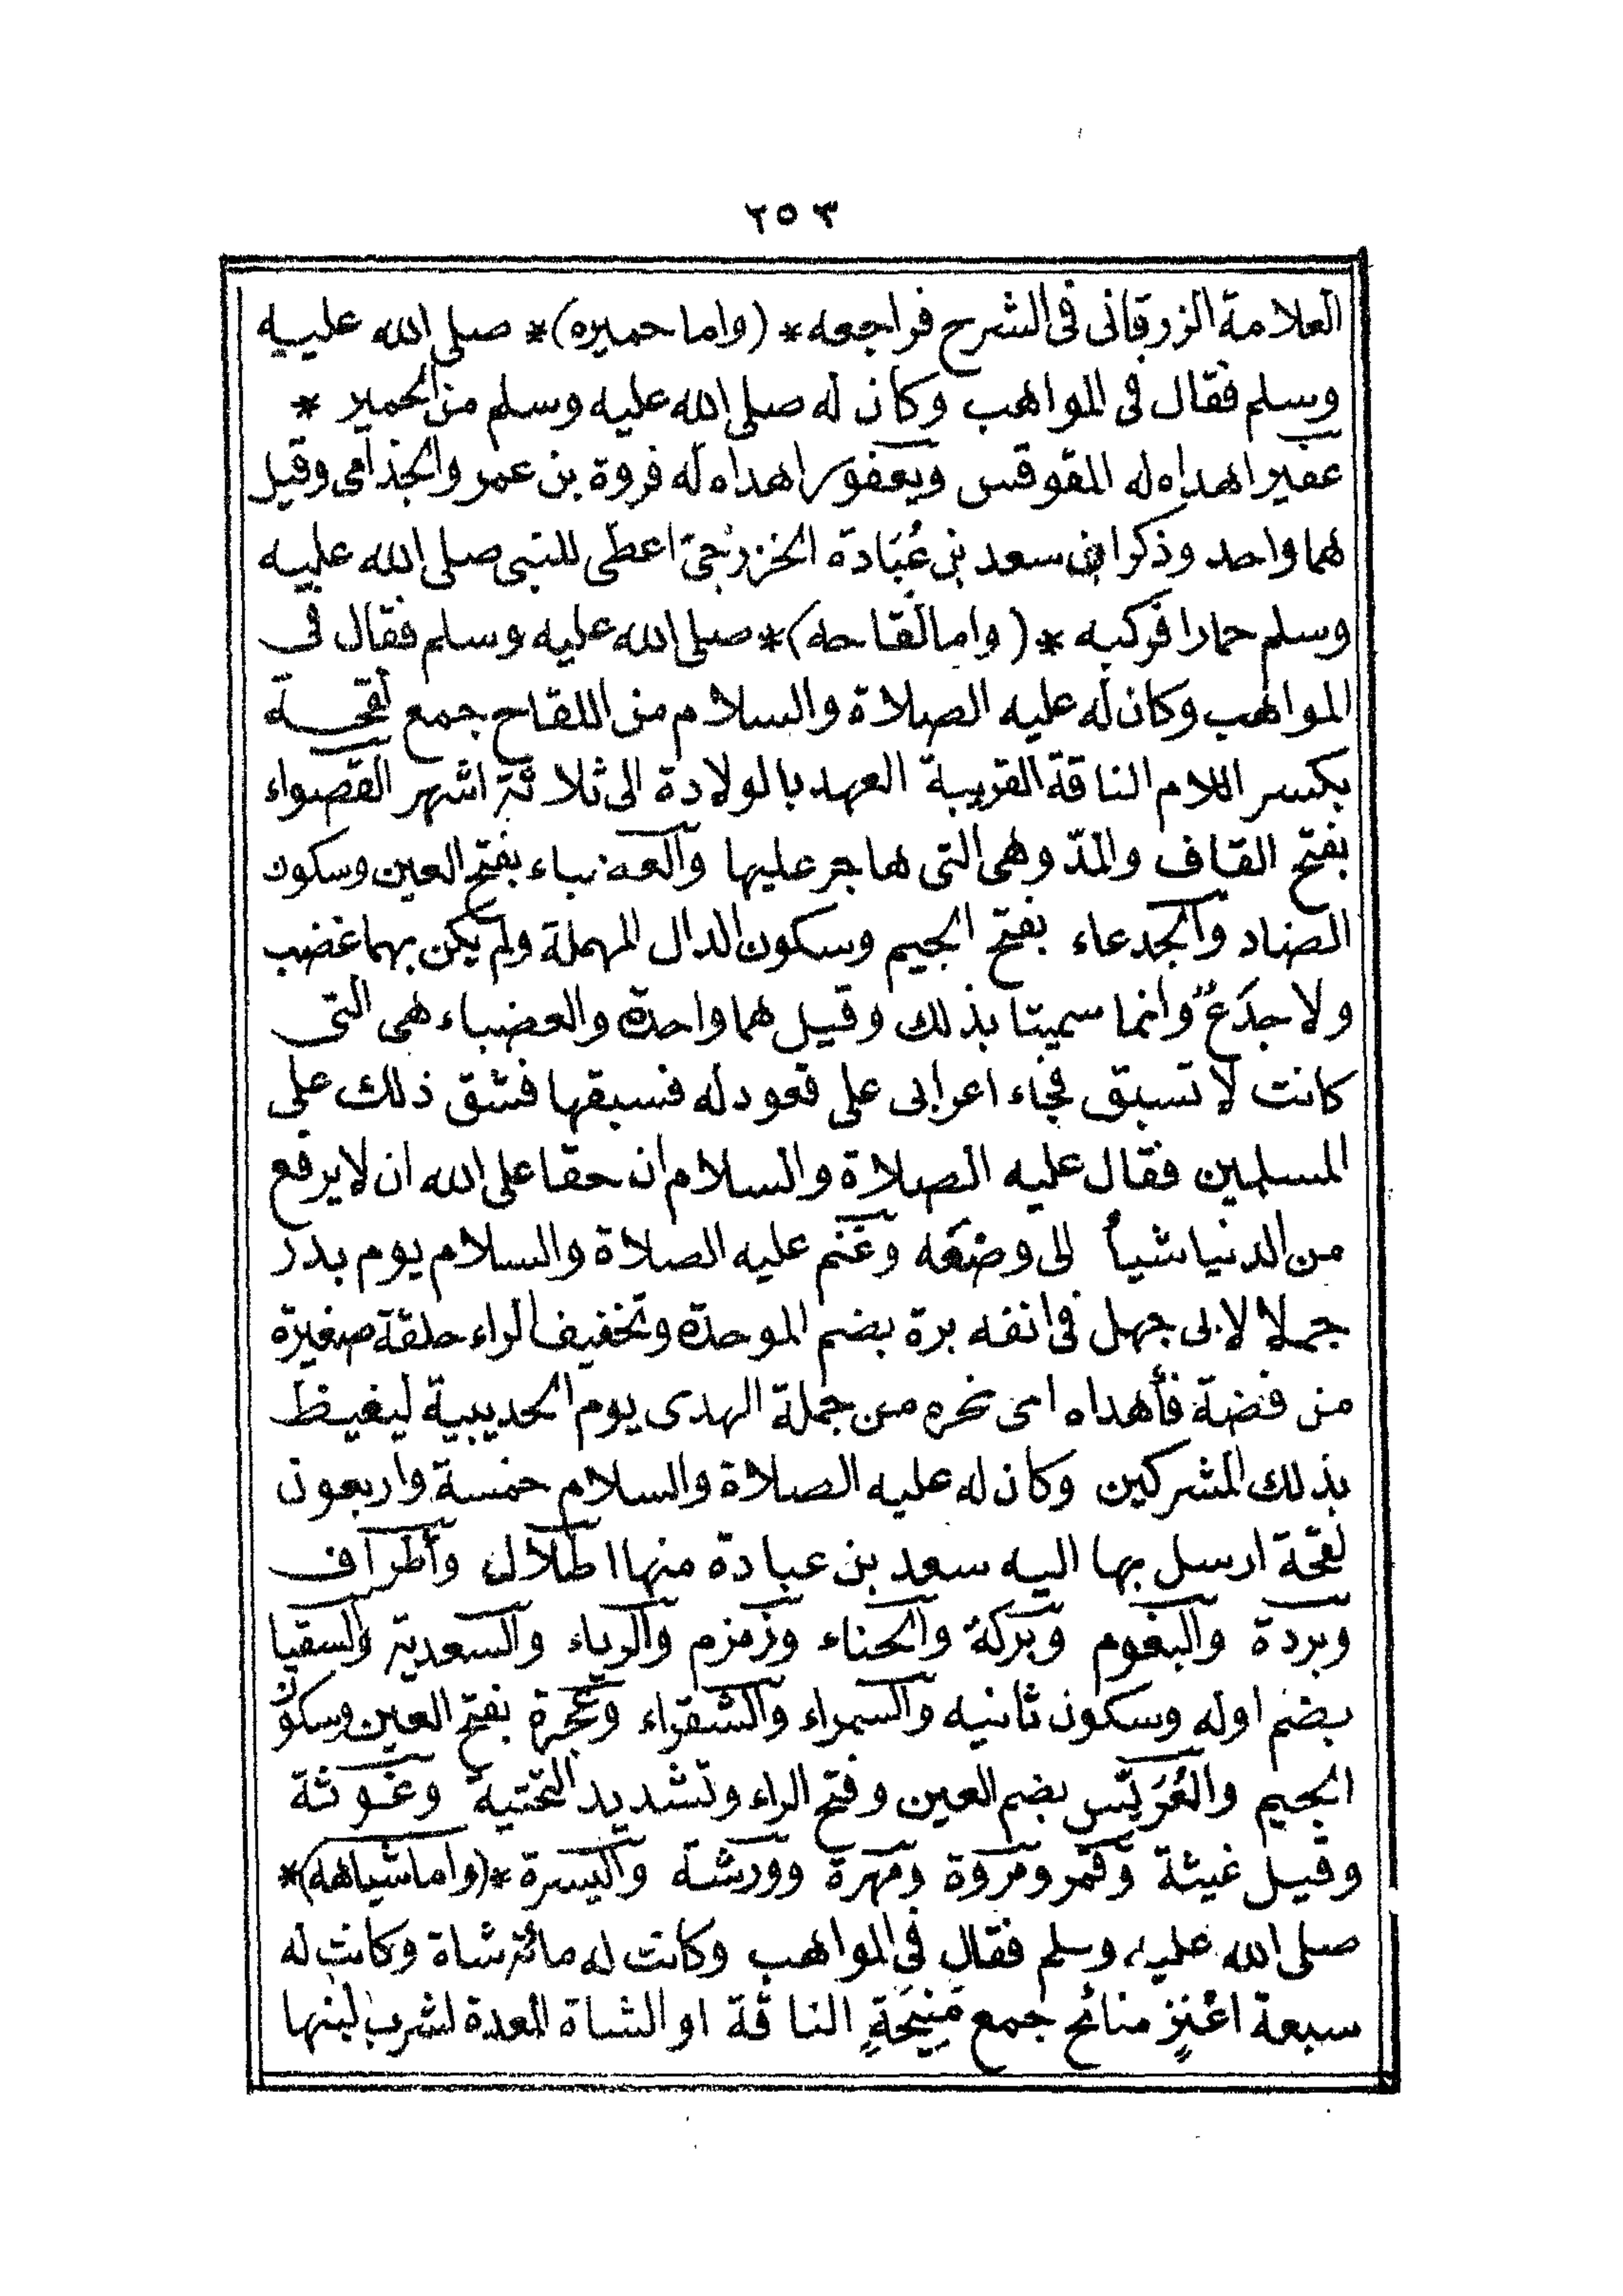 ٢٥٣
العلامة الزرقانى فى الشرح فراجعه * (واما حميره) * صلى الله عليه
وسلم فقال فى المواهب وكان له صلى الله عليه وسلم من الحمير *
عفير اهداه له المقوقس ويعفور اهداه له فروة بن عمرو الجذامى وقيل
هما واحد وذكر ان سعد بن عُبَادة الخزرجىّ اعطى للنبى صلى الله عليه
وسلم حمارا فركبه * (واما لقاحه) * صلى الله عليه وسلم فقال فى
المواهب وكان له عليه الصلاة والسلام من اللقاح جمع لقحة
بكسر اللام الناقة القريبة العهد بالولادة الى ثلاثة اشهر القصواء
بفتح القاف والمدّ وهى التى هاجر عليها والعضباء بفتح العين وسكون
الضاد والجدعاء بفتح الجيم وسكون الدال المهملة ولم يكن بهما غضب
ولا جدَعٌ وانما سميتا بذلك وقيل هما واحدة والعضباء هى التى
كانت لا تسبق فجاء اعرابى على قعود له فسبقها فشق ذلك على
المسلمين فقال عليه الصلاة والسلام ان حقا على الله ان لا يرفع
من الدنيا شيأ الى وضعَه وغنم عليه الصلاة والسلام يوم بدر
جملا لابى جهل فى انفه برة بضم الموحدة وتخفيف الراء حلقة صغيرة
من فضة فأهداه اى نحره من جملة الهدى يوم الحديبية ليغيظ
بذلك المشركين وكان له عليه الصلاة والسلام خمسة واربعون
لقحة ارسل بها اليه سعد بن عبادة منها اطلال وأطراف
وبردة والبغوم وبركة والحناء وزمزم والرياء والسعدية والسقيا
بضم اوله وسكون ثانيه والسمراء والشقراء وعجرة بفتح العين وسكون
الجيم والعُرَيّس بضم العين وفتح الراء وتشديد التحتية وغوثة
وقيل غيثة وقمر ومروة ومهرة وورشة واليسرة * (واما شياهه) *
صلى الله عليه وسلم فقال فى المواهب وكانت له مائة شاة وكانت له
سبعة اعْنِزٍ منائح جمع مَنِيحَةٍ الناقة او الشاة المعدة لشرب لبنها